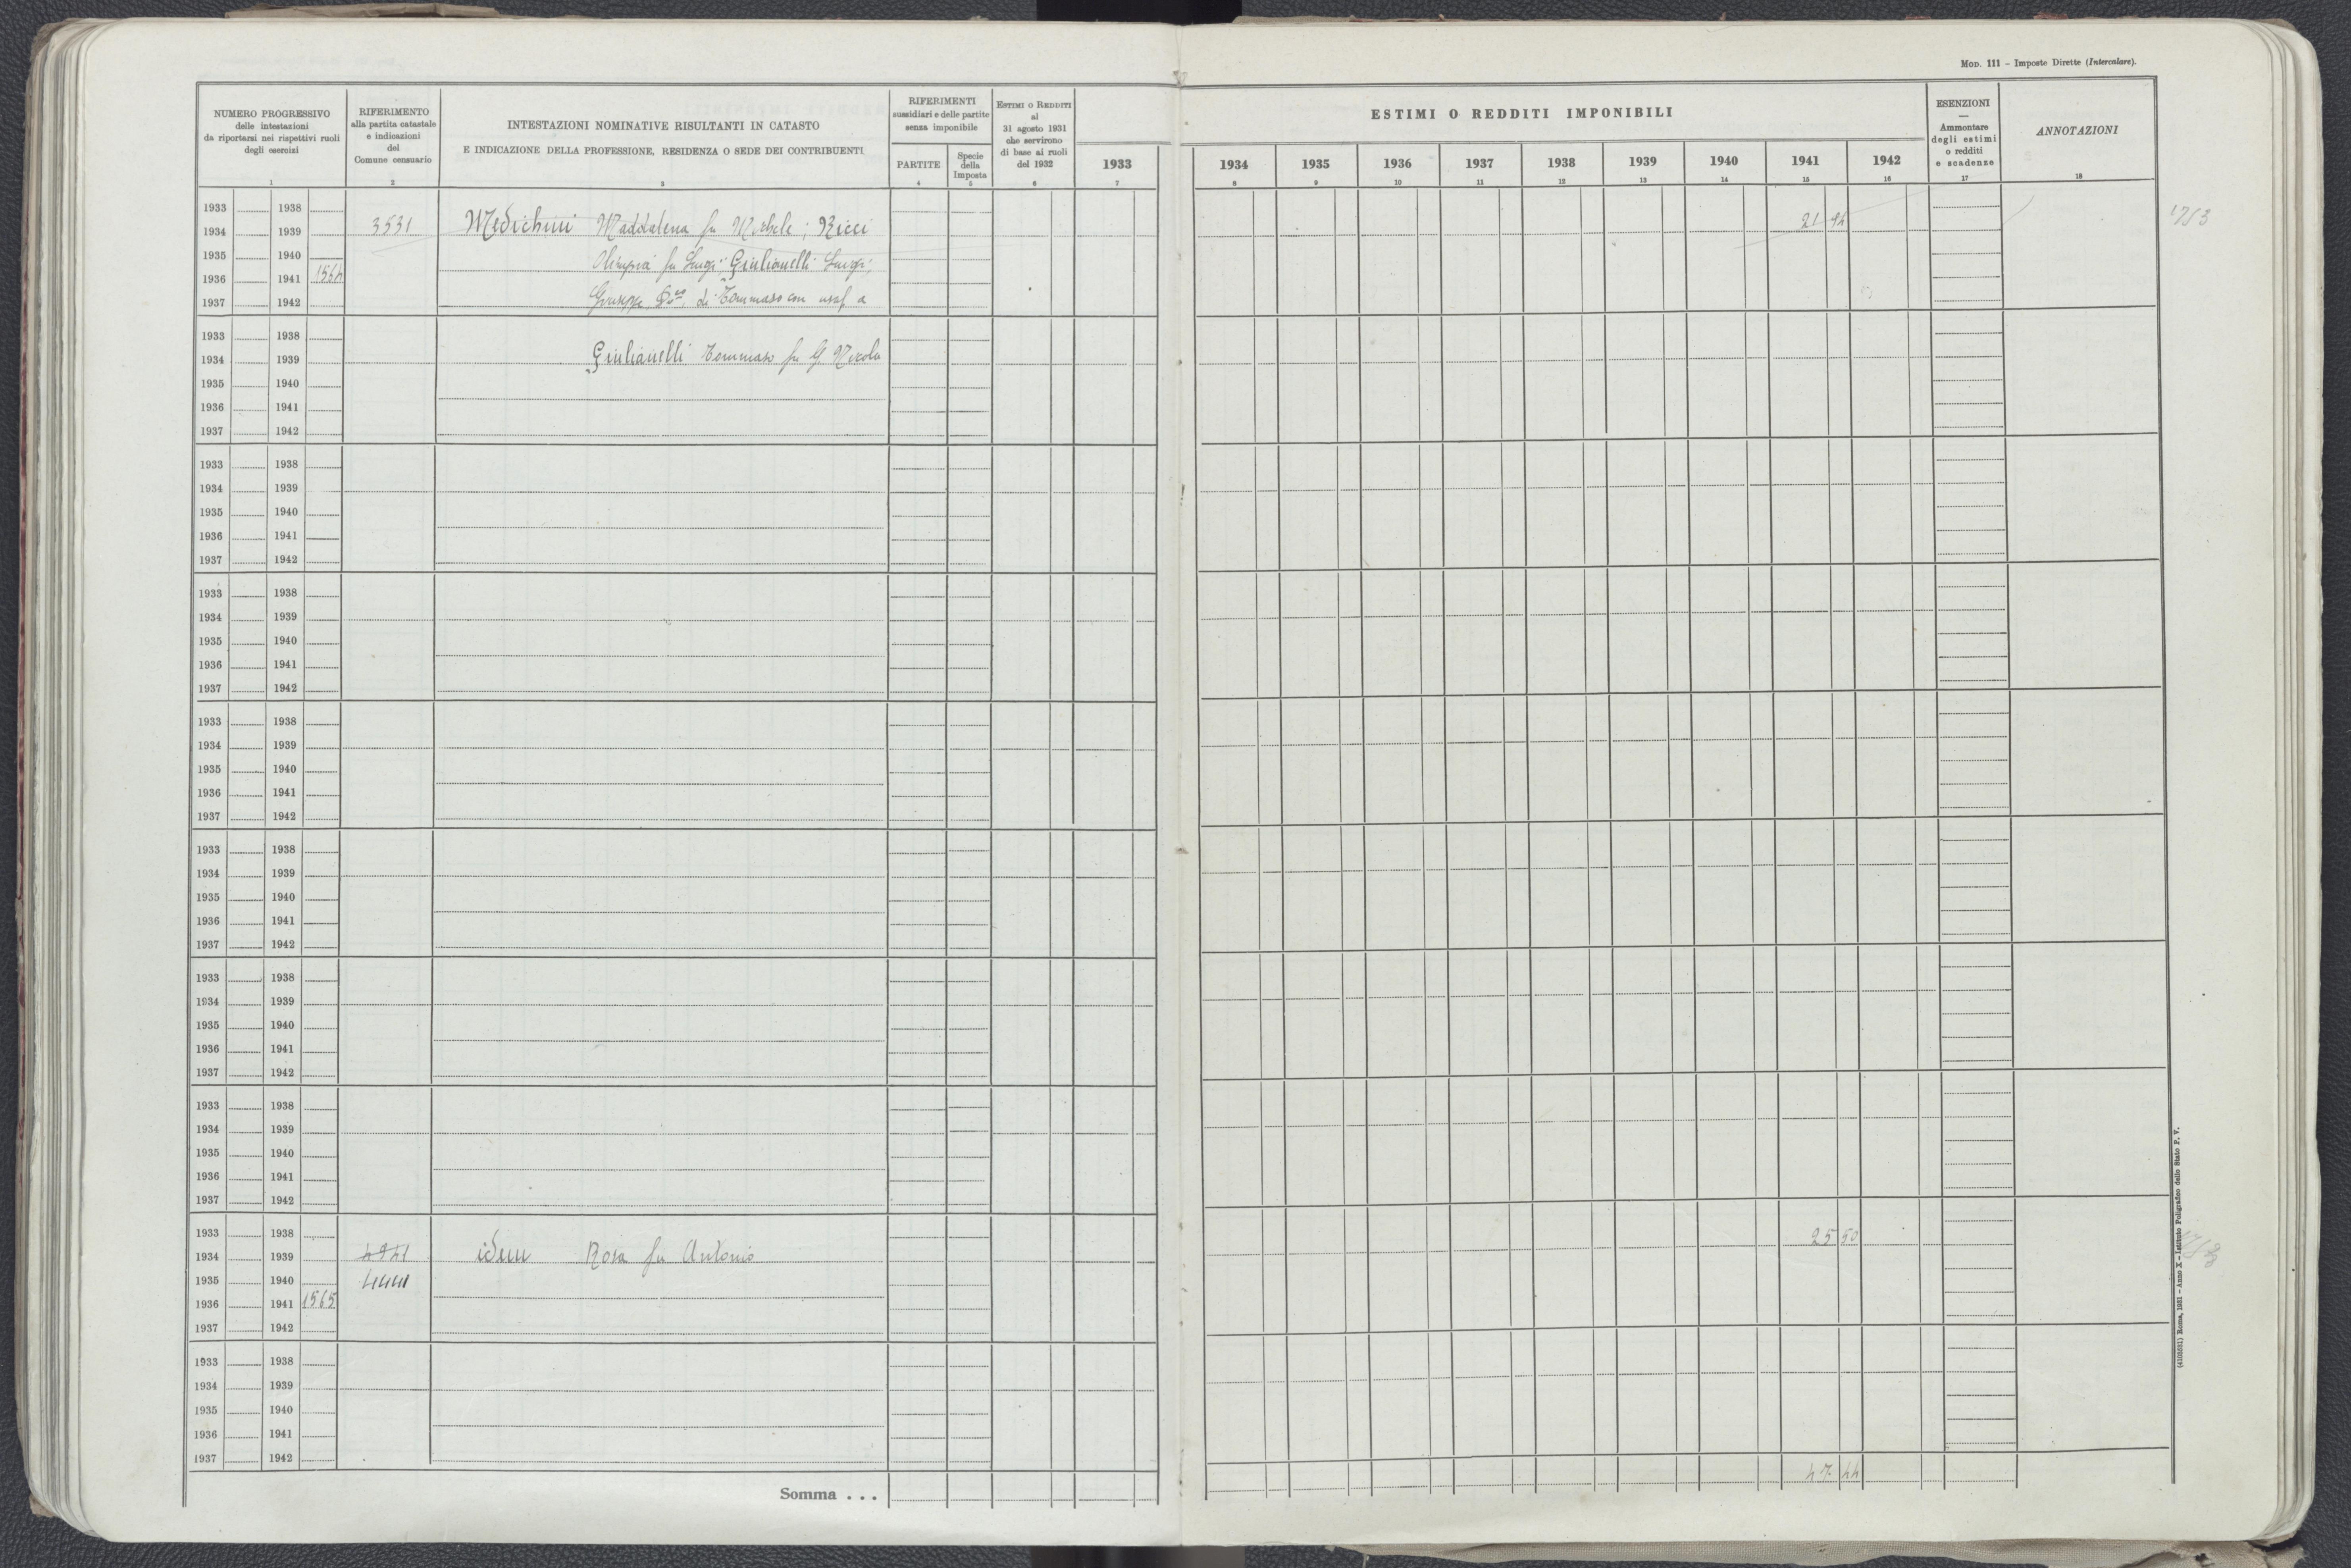 MOD. 111 – Imposte Dirette (Intercalare).
NUMERO PROGRESSIVO
delle intestazioni
da riportarsi nei rispettivi ruoli
degli esercizi
1
RIFERIMENTO
alla partita catastale
e indicazioni
del
Comune censuario
2
INTESTAZIONI NOMINATIVE RISULTANTI IN CATASTO
E INDICAZIONE DELLA PROFESSIONE, RESIDENZA O SEDE DEI CONTRIBUENTI
3
RIFERIMENTI
sussidiari e delle partite
senza imponibile
PARTITE
4
Specie
della
Imposta
5
ESTIMI O REDDITI
al
31 agosto 1931
che servirono
di base ai ruoli
del 1932
6
ESTIMI O REDDITI IMPONIBILI
1933 1934 1935 1936 1937 1938 1939 1940 1941 1942
7 8 9 10 11 12 13 14 15 16
ESENZIONI
—
Ammontare
degli estimi
o redditi
e scadenze
17
ANNOTAZIONI
18
1933 1938
1934 1939 3531 Medichini Maddalena fu Michele; Ricci 21 94
1935 1940 Olimpia fu Luigi; Giulianelli Luigi;
1936 1941 1564
1937 1942 Giuseppe, di Tommaso con usuf a
1933 1938
1934 1939 Giulianelli Tommaso fu G Nicola
1935 1940
1936 1941
1937 1942
1933 1938
1934 1939
1935 1940
1936 1941
1937 1942
1933 1938
1934 1939
1935 1940
1936 1941
1937 1942
1933 1938
1934 1939
1935 1940
1936 1941
1937 1942
1933 1938
1934 1939
1935 1940
1936 1941
1937 1942
1933 1938
1934 1939
1935 1940
1936 1941
1937 1942
1933 1938
1934 1939
1935 1940
1936 1941
1937 1942
1933 1938 25 50
1934 1939 idem Rosa fu Antonio
1935 1940 4441
1936 1941 1565
1937 1942
1933 1938
1934 1939
1935 1940
1936 1941
1937 1942
Somma . . . 47 44
(4103531) Roma, 1931 – Anno X – Istituto Poligrafico dello Stato P. V.